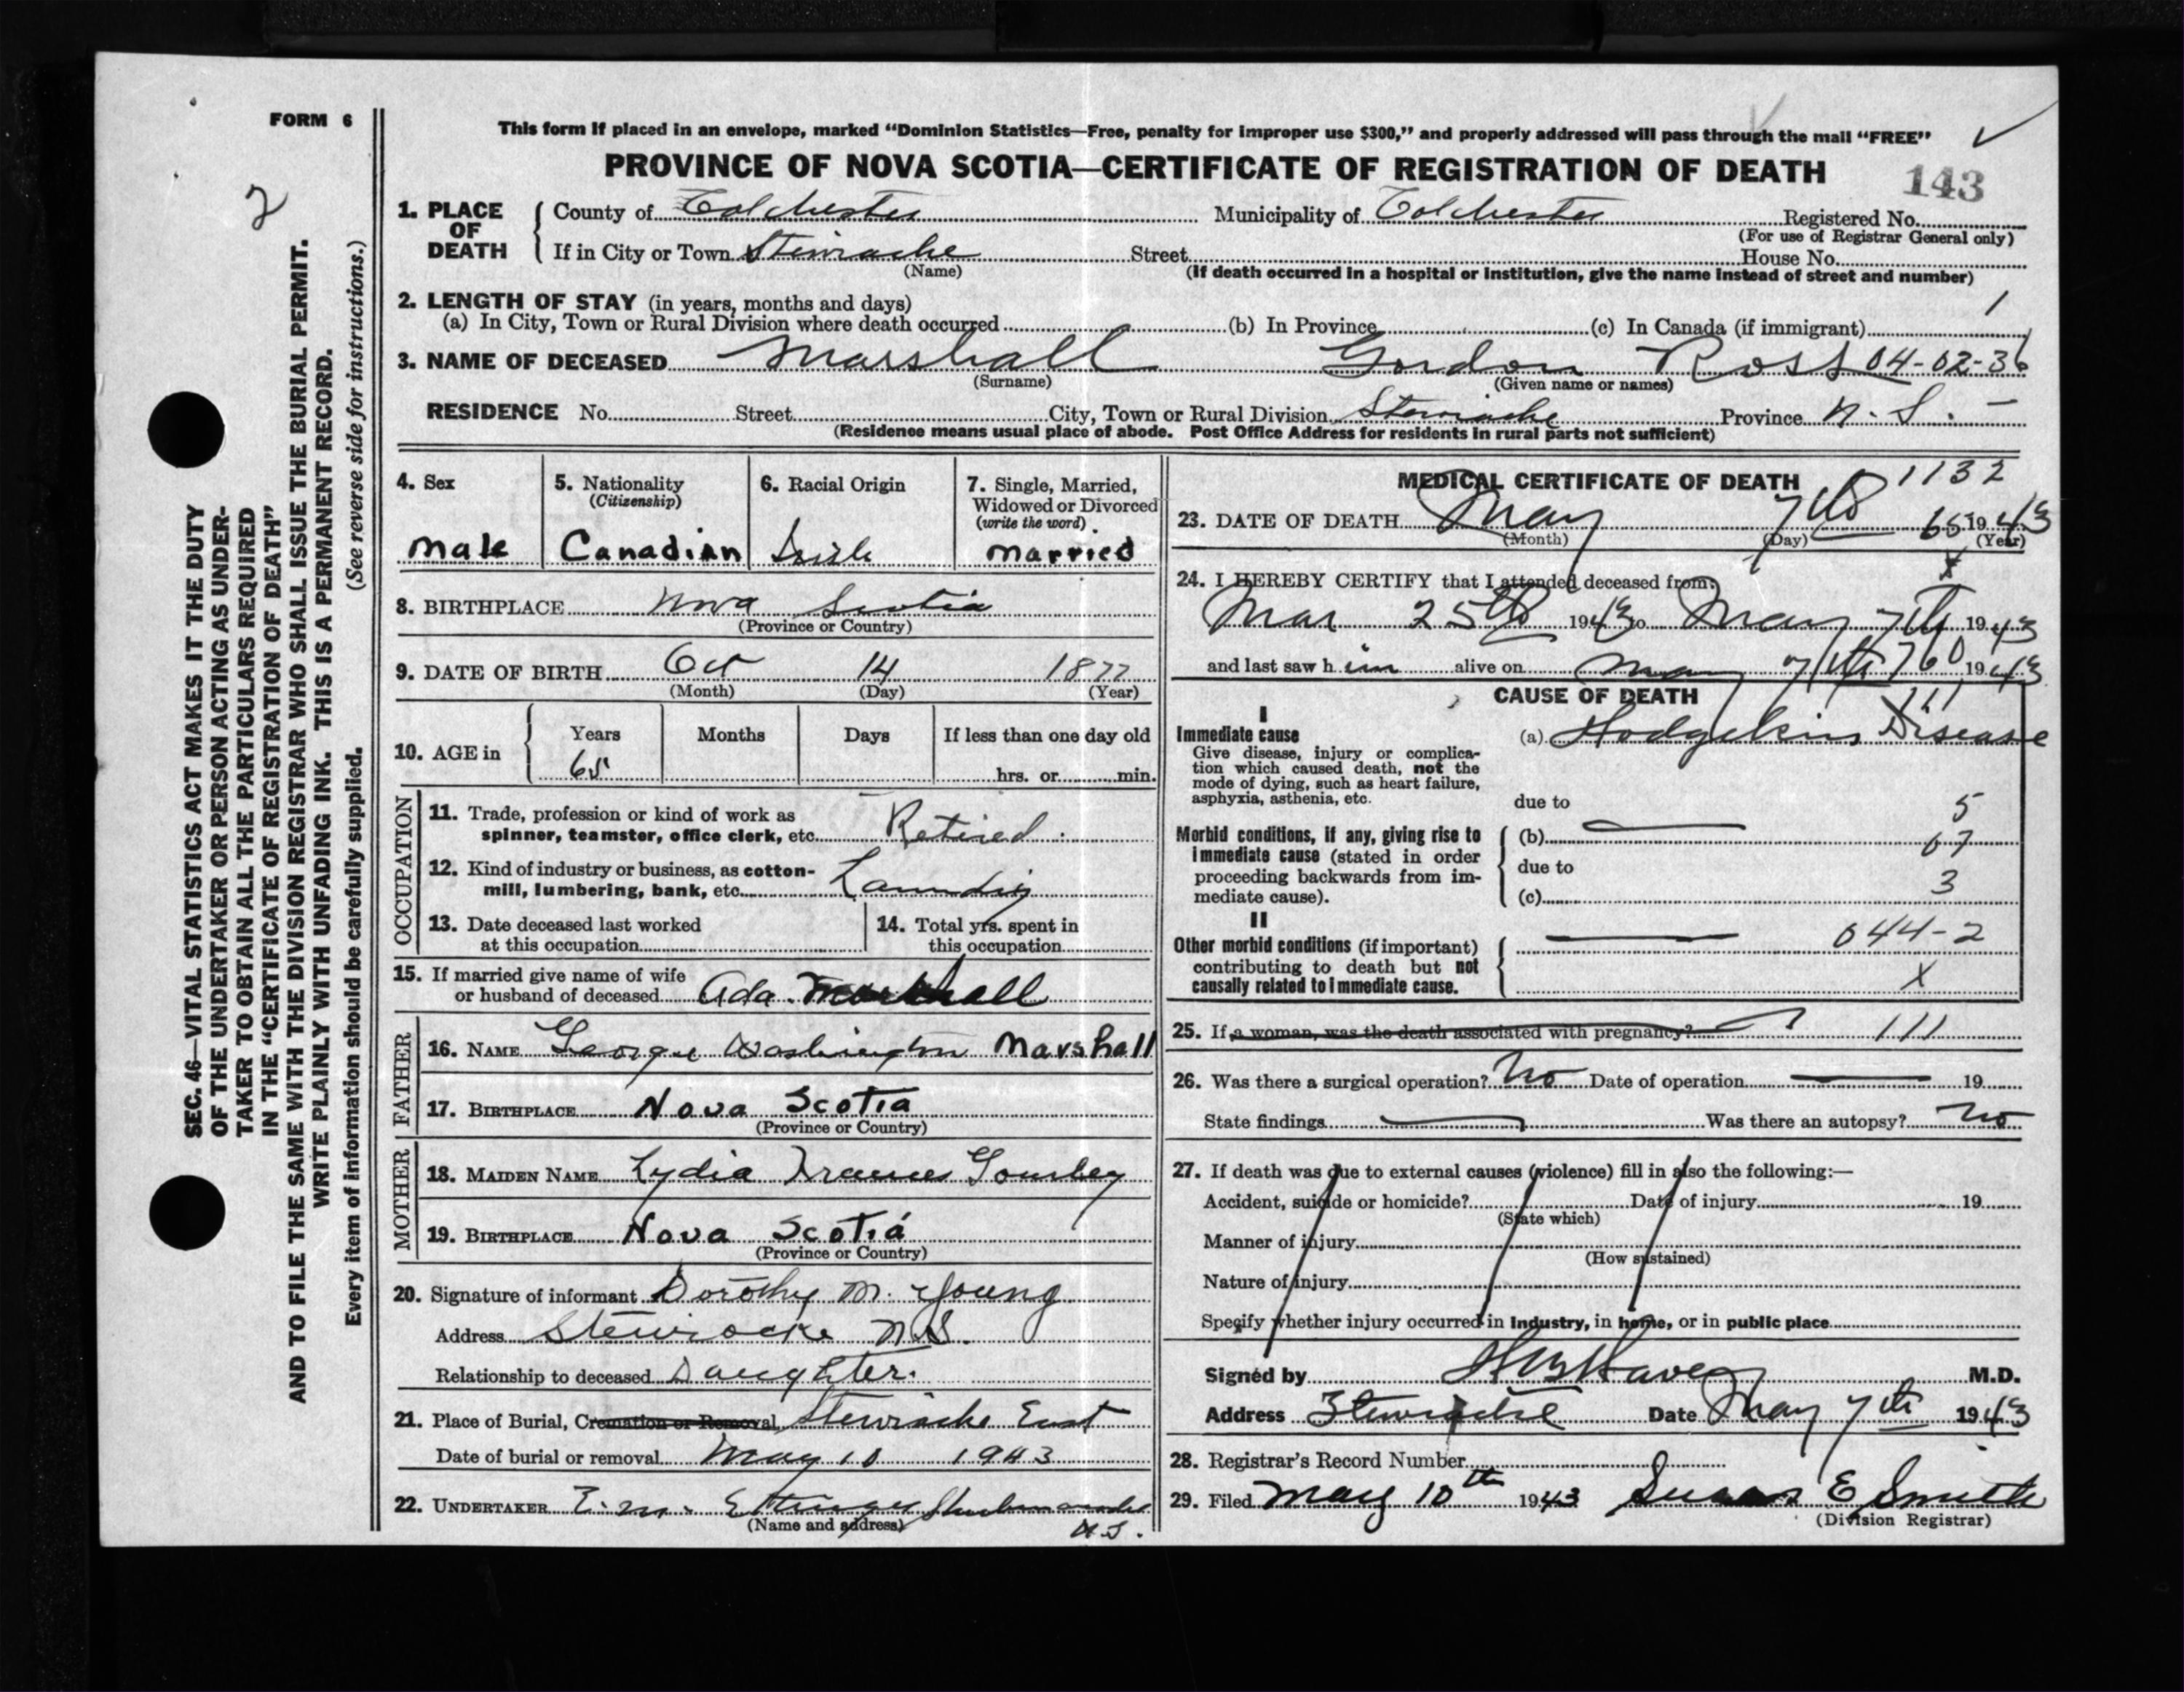 FORM 6
2
SEC. 46—VITAL STATISTICS ACT MAKES IT THE DUTY
OF THE UNDERTAKER OR PERSON ACTING AS UNDER-
TAKER TO OBTAIN ALL THE PARTICULARS REQUIRED
IN THE "CERTIFICATE OF REGISTRATION OF DEATH"
AND TO FILE THE SAME WITH THE DIVISION REGISTRAR WHO SHALL ISSUE THE BURIAL PERMIT.
WRITE PLAINLY WITH UNFADING INK. THIS IS A PERMANENT RECORD.
Every item of information should be carefully supplied. (See reverse side for instructions.)
This form if placed in an envelope, marked "Dominion Statistics—Free, penalty for improper use $300," and properly addressed will pass through the mail "FREE"
PROVINCE OF NOVA SCOTIA—CERTIFICATE OF REGISTRATION OF DEATH
143
1. PLACE OF DEATH County of Colchester Municipality of Colchester Registered No.
(For use of Registrar General only)
If in City or Town Stewiacke Street House No.
(Name) (If death occurred in a hospital or institution, give the name instead of street and number)
2. LENGTH OF STAY (in years, months and days) 1
(a) In City, Town or Rural Division where death occurred (b) In Province (c) In Canada (if immigrant)
3. NAME OF DECEASED Marshall Gordon Ross 04-02-36
(Surname) (Given name or names)
RESIDENCE No. Street City, Town or Rural Division Stewiacke Province N.S. -
(Residence means usual place of abode. Post Office Address for residents in rural parts not sufficient)
4. Sex 5. Nationality 6. Racial Origin 7. Single, Married,
(Citizenship) Widowed or Divorced
(write the word)
Male Canadian Irish Married
8. BIRTHPLACE Nova Scotia
(Province or Country)
9. DATE OF BIRTH Oct 14 1877
(Month) (Day) (Year)
10. AGE in Years Months Days If less than one day old
65 hrs. or min.
OCCUPATION
11. Trade, profession or kind of work as
spinner, teamster, office clerk, etc. Retired
12. Kind of industry or business, as cotton-
mill, lumbering, bank, etc. Laundry
13. Date deceased last worked
at this occupation
14. Total yrs. spent in
this occupation
15. If married give name of wife
or husband of deceased Ada Marshall
FATHER
16. NAME George Washington Marshall
17. BIRTHPLACE Nova Scotia
(Province or Country)
MOTHER
18. MAIDEN NAME Lydia Frances Gourley
19. BIRTHPLACE Nova Scotia
(Province or Country)
20. Signature of informant Dorothy M. Young
Address Stewiacke N.S.
Relationship to deceased Daughter.
21. Place of Burial, Cremation or Removal Stewiacke East
Date of burial or removal May 10 1943
22. UNDERTAKER E. M. Ettinger Shubenacadie
(Name and address) N.S.
MEDICAL CERTIFICATE OF DEATH 1132
23. DATE OF DEATH May 7th 65 1943
(Month) (Day) (Year)
x
24. I HEREBY CERTIFY that I attended deceased from:
Mar 25th 1943 to May 7th 1943
and last saw him alive on May 7th 760 1943
CAUSE OF DEATH 111
I
Immediate cause
Give disease, injury or complica-
tion which caused death, not the
mode of dying, such as heart failure,
asphyxia, asthenia, etc.
(a) Hodgekins Disease
due to 5
Morbid conditions, if any, giving rise to
immediate cause (stated in order
proceeding backwards from im-
mediate cause).
(b) — 67
due to
(c) 3
II
Other morbid conditions (if important)
contributing to death but not
causally related to immediate cause.
— 044-2
X
25. If a woman, was the death associated with pregnancy? 111
26. Was there a surgical operation? No Date of operation — 19
State findings — Was there an autopsy? No
27. If death was due to external causes (violence) fill in also the following:—
Accident, suicide or homicide? Date of injury 19
(State which)
Manner of injury
(How sustained)
Nature of injury
Specify whether injury occurred in industry, in home, or in public place
Signed by M.D.
Address Stewiacke Date May 7th 1943
28. Registrar's Record Number
29. Filed May 10th 1943 Susan E Smith
(Division Registrar)